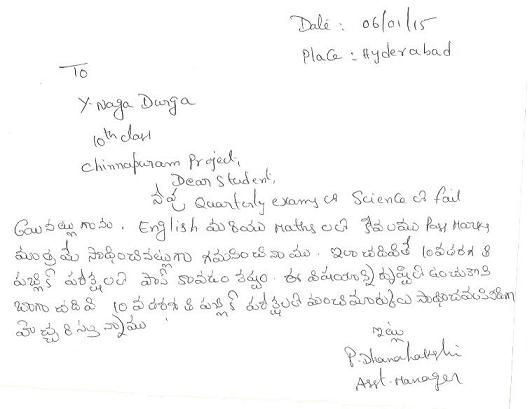 Date: 06/01/15
Place: Hyderabad
To
Y. Naga Durga
10th class
Chinnapuram Project,
Dear Student,
నీవు Quarterly exams లో Science లో fail
English మరియు Maths లలో కేవలము Pass Marks
మాత్రమే సాధించినట్లుగా గమనించినాము. ఇలా చదివితే 10వ తరగతి
పబ్లిక్ పరీక్షలలో పాస్ కావడం కష్టం. ఈ విషయాన్ని దృష్టిలో ఉంచుకొని
బాగా చదివి 10 వ తరగతి పబ్లిక్ పరీక్షలలో మంచి మార్కులు
ఇట్లు
P. Dhanalakshi
Asst. Manager